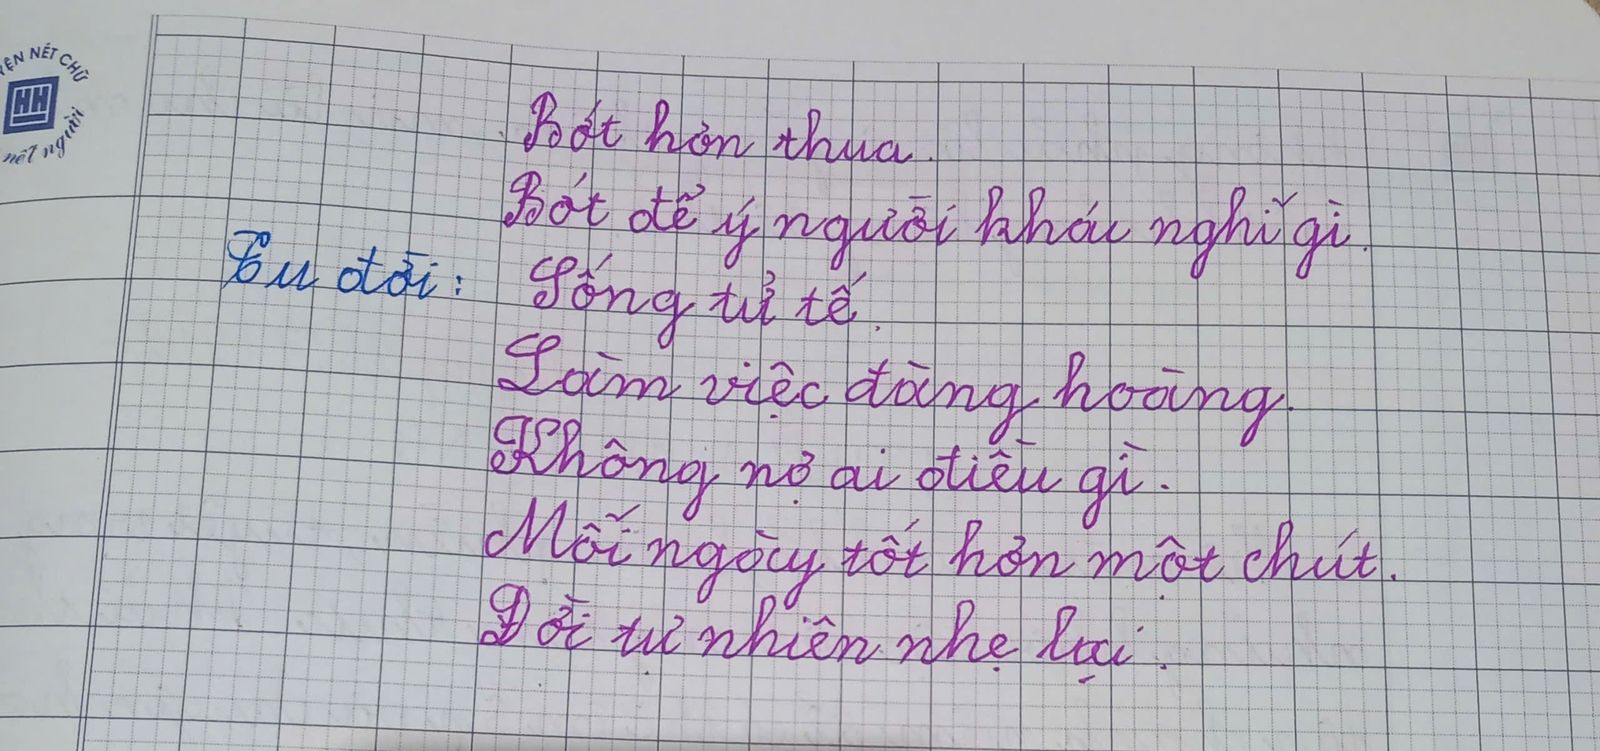 LUYỆN NÉT CHỮ
HH
nết người
Bớt hơn thua.
Bớt để ý người khác nghĩ gì.
Tu đời:
Sống tử tế.
Làm việc đàng hoàng.
Không nợ ai điều gì.
Mỗi ngày tốt hơn một chút.
Đời tự nhiên nhẹ lại.